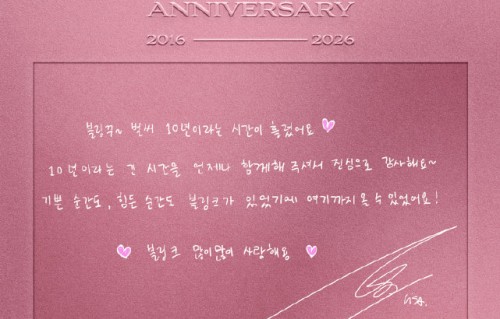 ANNIVERSARY
2016 2026
블링꾸~ 벌써 10년이라는 시간이 흘렀어요
10년이라는 긴 시간을 언제나 함께해 주셔서 진심으로 감사해요~
기쁜 순간도, 힘든 순간도 블링크가 있었기에 여기까지 올 수 있었어요!
블링크 많이많이 사랑해용
LISA.